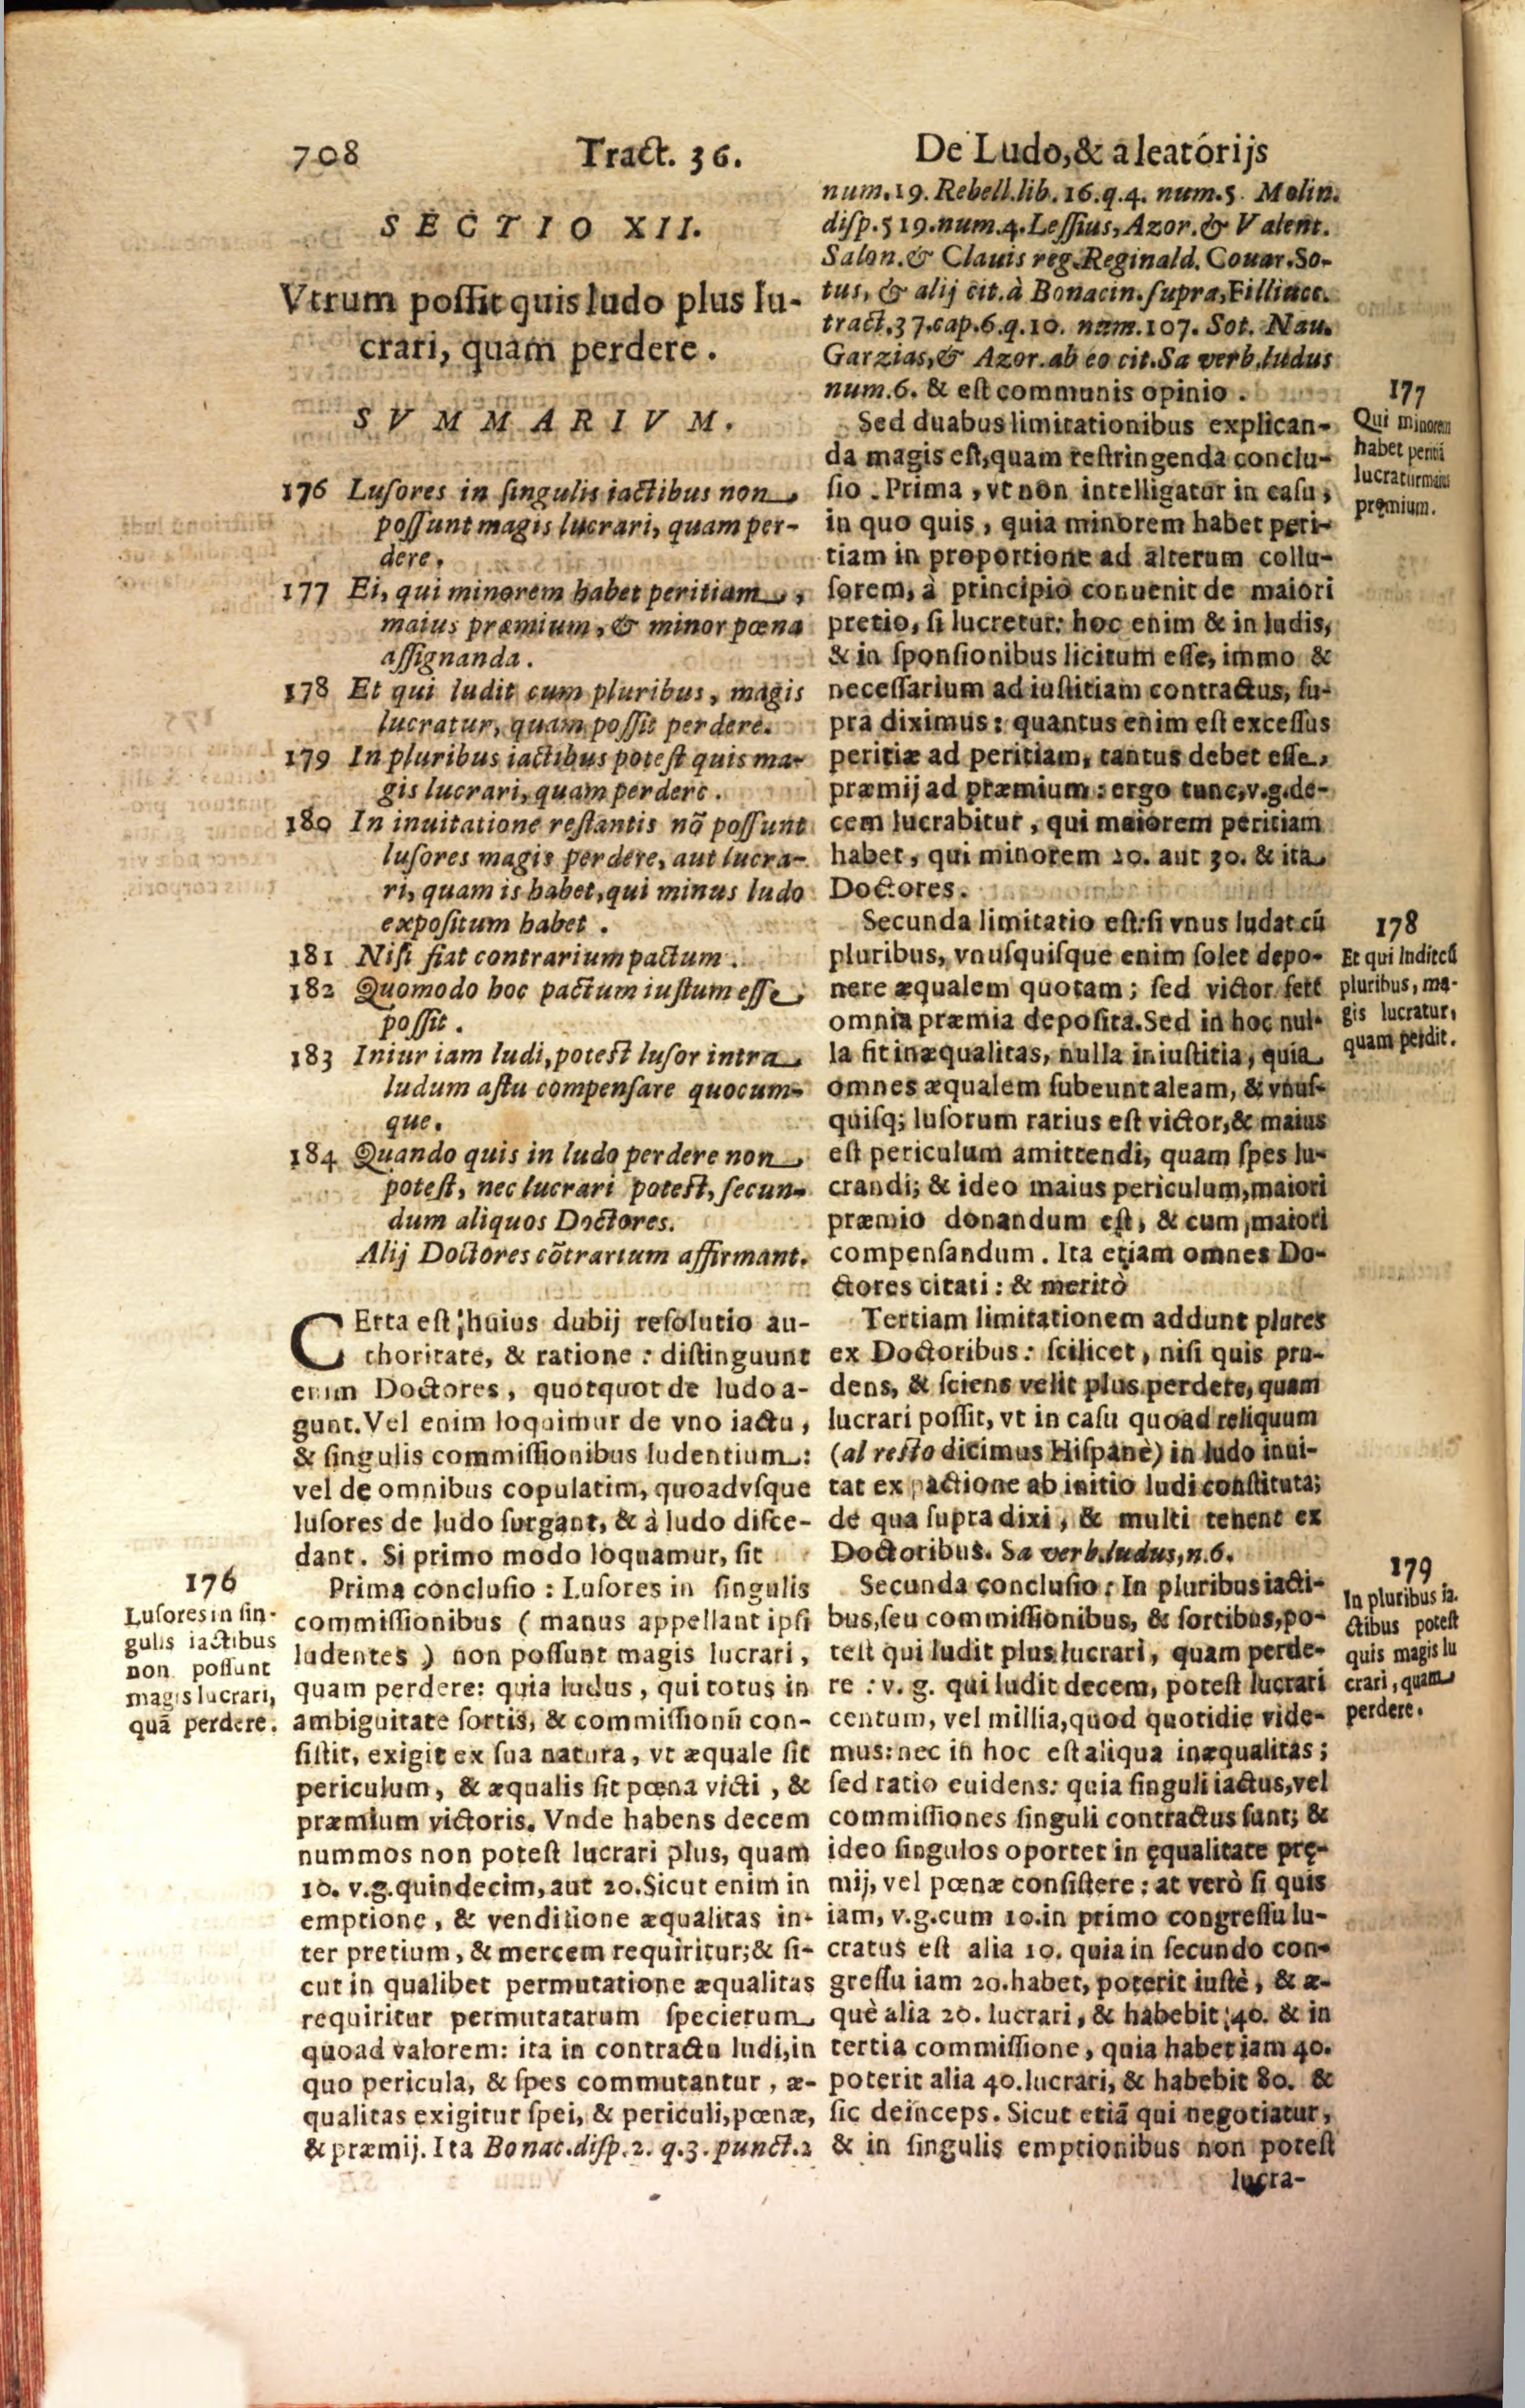 708 Tract. 36. De Ludo,& aleatórijs
SECTIO XII.
Vtrum poſſit quis ludo plus lu-
crari, quam perdere.
SVMMARIVM.
176 Luſores in ſingulis iactibus non
poſſunt magis lucrari, quam per-
dere.
177 Ei, qui minorem habet peritiam,
maius præmium, & minor pœna
aſſignanda.
178 Et qui ludit cum pluribus, magis
lucratur, quam poſſit perdere.
179 In pluribus iactibus poteſt quis ma-
gis lucrari, quam perdere.
180 In inuitatione reſtantis nõ poſſunt
luſores magis perdere, aut lucra-
ri, quam is habet, qui minus ludo
expoſitum habet.
181 Niſi fiat contrarium pactum.
182 Quomodo hoc pactum iuſtum eſſe
poſſit.
183 Iniuriam ludi, poteſt luſor intra
ludum aſtu compenſare quocum-
que.
184 Quando quis in ludo perdere non
poteſt, nec lucrari poteſt, ſecun-
dum aliquos Doctores.
Alij Doctores cõtrarium affirmant.
CErta eſt huius dubij reſolutio au-
thoritate, & ratione: diſtinguunt
enim Doctores, quotquot de ludo a-
gunt. Vel enim loquimur de vno iactu,
& ſingulis commiſſionibus ludentium:
vel de omnibus copulatim, quoadvſque
luſores de ludo ſurgant, & à ludo diſce-
dant. Si primo modo loquamur, ſit
176
Luſores in ſin-
gulis iactibus
non poſſunt
magis lucrari,
quã perdere.
Prima concluſio: Luſores in ſingulis
commiſſionibus (manus appellant ipſi
ludentes) non poſſunt magis lucrari,
quam perdere: quia ludus, qui totus in
ambiguitate ſortis, & commiſſionũ con-
ſiſtit, exigit ex ſua natura, vt æquale ſit
periculum, & æqualis ſit pœna victi, &
præmium victoris. Vnde habens decem
nummos non poteſt lucrari plus, quam
10. v.g. quindecim, aut 20. Sicut enim in
emptione, & venditione æqualitas in-
ter pretium, & mercem requiritur; & ſi-
cut in qualibet permutatione æqualitas
requiritur permutatarum ſpecierum
quoad valorem: ita in contractu ludi, in
quo pericula, & ſpes commutantur, æ-
qualitas exigitur ſpei, & periculi, pœnæ,
& præmij. Ita Bonac. diſp. 2. q.3. punct.2
num.19. Rebell. lib. 16. q.4. num.5. Molin.
diſp. 519. num.4. Leſſius, Azor. & Valent.
Salon. & Clauis reg. Reginald. Couar. So-
tus, & alij cit. à Bonacin. ſupra, Filliucc.
tract.37. cap.6. q.10. num.107. Sot. Nau.
Garzias, & Azor. ab eo cit. Sa verb. ludus
num.6. & eſt communis opinio.
177
Qui minorem
habet peritiã
lucratur maius
premium.
Sed duabus limitationibus explican-
da magis eſt, quam reſtringenda conclu-
ſio. Prima, vt non intelligatur in caſu,
in quo quis, quia minorem habet peri-
tiam in proportione ad alterum collu-
ſorem, à principio conuenit de maiori
pretio, ſi lucretur: hoc enim & in ludis,
& in ſponſionibus licitum eſſe, immo &
neceſſarium ad iuſtitiam contractus, ſu-
pra diximus: quantus enim eſt exceſſus
peritiæ ad peritiam, tantus debet eſſe
præmij ad præmium: ergo tunc, v.g. de-
cem lucrabitur, qui maiorem peritiam
habet, qui minorem 20. aut 30. & ita
Doctores.
178
Et qui ludit cũ
pluribus, ma-
gis lucratur,
quam perdit.
Secunda limitatio eſt: ſi vnus ludat cũ
pluribus, vnuſquiſque enim ſolet depo-
nere æqualem quotam; ſed victor fert
omnia præmia depoſita. Sed in hoc nul-
la fit inæqualitas, nulla iniuſtitia, quia
omnes æqualem ſubeunt aleam, & vnuſ-
quiſq; luſorum rarius eſt victor, & maius
eſt periculum amittendi, quam ſpes lu-
crandi; & ideo maius periculum, maiori
præmio donandum eſt, & cum maiori
compenſandum. Ita etiam omnes Do-
ctores citati: & meritò
Tertiam limitationem addunt plures
ex Doctoribus: ſcilicet, niſi quis pru-
dens, & ſciens velit plus perdere, quam
lucrari poſſit, vt in caſu quoad reliquum
(al reſto dicimus Hiſpanè) in ludo inui-
tat ex pactione ab initio ludi conſtituta;
de qua ſupra dixi, & multi tenent ex
Doctoribus. Sa verb. ludus, n.6.
179
In pluribus ia-
ctibus poteſt
quis magis lu
crari, quam
perdere.
Secunda concluſio: In pluribus iacti-
bus, ſeu commiſſionibus, & ſortibus, po-
teſt qui ludit plus lucrari, quam perde-
re: v. g. qui ludit decem, poteſt lucrari
centum, vel millia, quod quotidie vide-
mus: nec in hoc eſt aliqua inæqualitas;
ſed ratio euidens: quia ſinguli iactus, vel
commiſſiones ſinguli contractus ſunt; &
ideo ſingulos oportet in ęqualitate prę-
mij, vel pœnæ conſiſtere: at verò ſi quis
iam, v.g. cum 10. in primo congreſſu lu-
cratus eſt alia 10. quia in ſecundo con-
greſſu iam 20. habet, poterit iuſtè, & æ-
què alia 20. lucrari, & habebit 40. & in
tertia commiſſione, quia habet iam 40.
poterit alia 40. lucrari, & habebit 80. &
ſic deinceps. Sicut etiã qui negotiatur,
& in ſingulis emptionibus non poteſt
lucra-